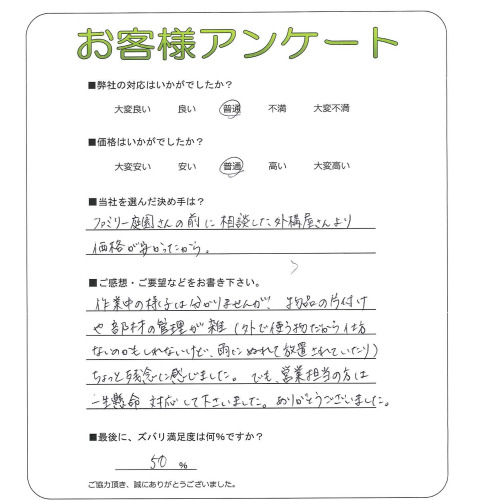 お客様アンケート
■弊社の対応はいかがでしたか？
大変良い 良い 普通 不満 大変不満
■価格はいかがでしたか？
大変安い 安い 普通 高い 大変高い
■当社を選んだ決め手は？
ファミリー庭園さんの前に相談した外構屋さんより
価格が安かったから。
■ご感想・ご要望などをお書き下さい。
作業中の様子は分かりませんが、物品の片付け
や部材の管理が雑（外で使う物だから仕方
ないのかもしれないけど、雨にぬれて放置されていたり）
ちょっと残念に感じました。でも、営業担当の方は
一生懸命対応して下さいました。ありがとうございました。
■最後に、ズバリ満足度は何%ですか？
50 %
ご協力頂き、誠にありがとうございました。